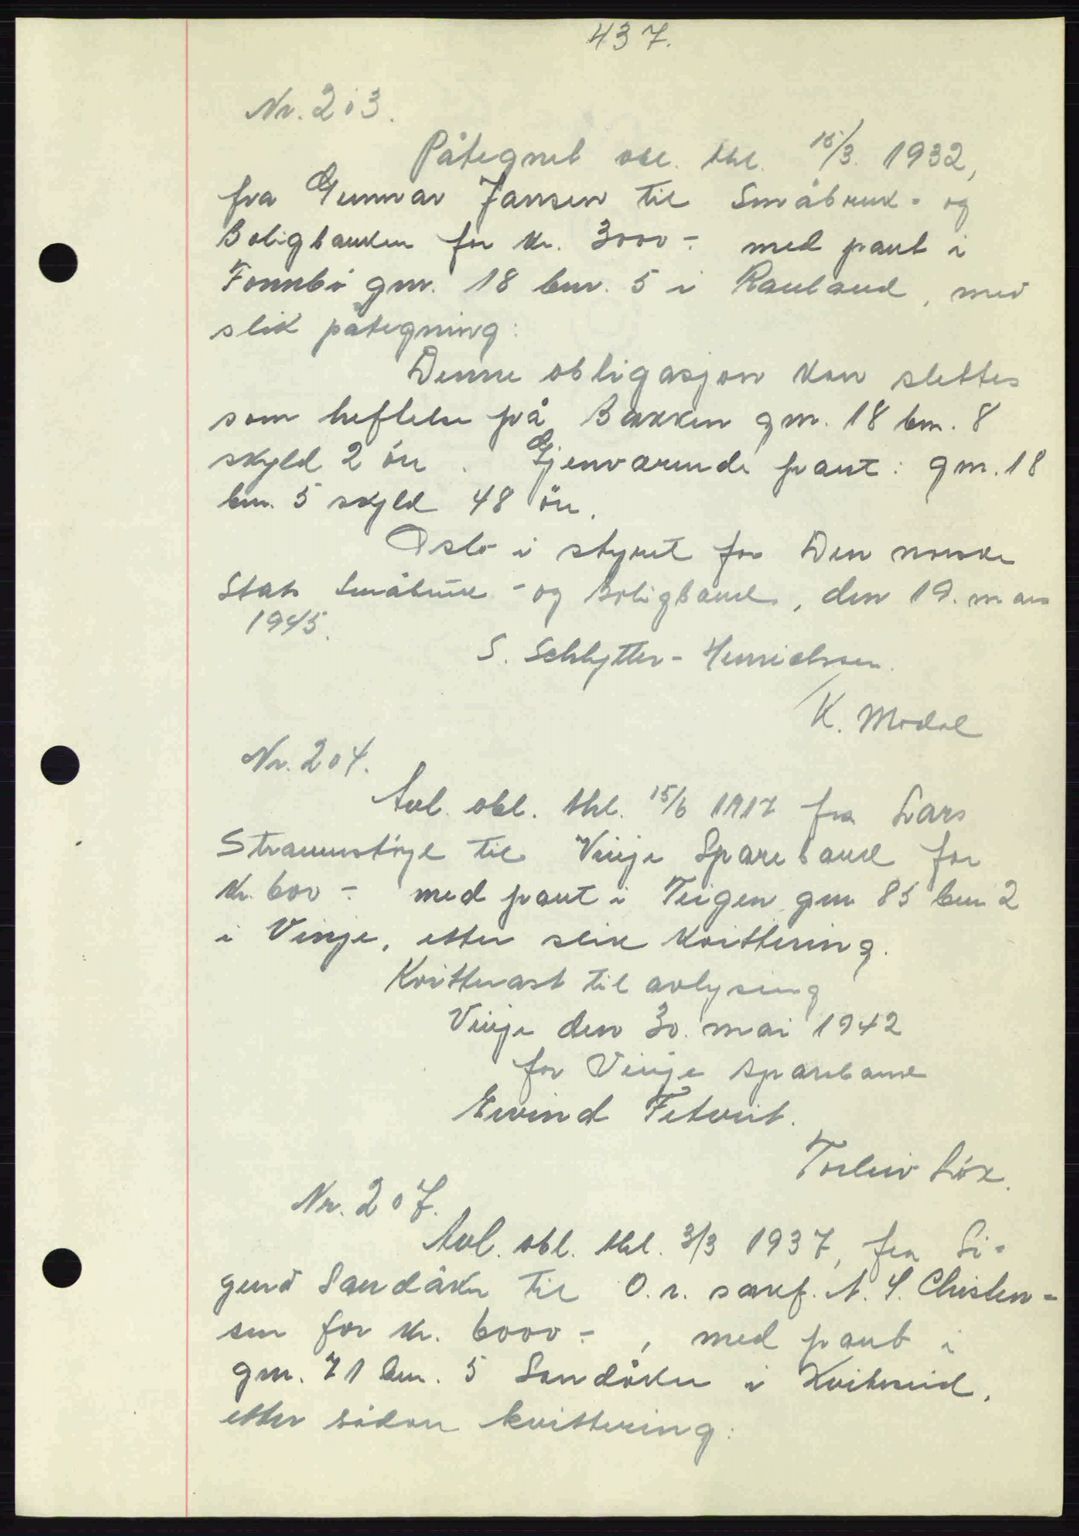 437.
Nr. 203.
Påtegnet obl. thl. 15/3. 1932,
fra Gunnar Jansen til Småbruk- og
Boligbanken for kr. 3000 - med pant i
gnr. 18 bnr. 5 i Rauland, med
slik påtegning:
Denne obligasjon kan slettes
som heftelse på Bakken gnr. 18 bnr. 8
skyld 2 øre. Gjenværende pant: gnr. 18
bnr. 5 skyld 48 øre.
Oslo i styret for Den norske
Stats Småbruk - og Boligbank, den 19. mars
1945.
S. Schlytter-Henrichsen.
K. Modal
Nr. 204.
Avl. obl. thl. 15/6 1917 fra Lars
Straumstøyl til Vinje Sparebank for
kr. 600 - med pant i Teigen gnr 85 bnr 2
i Vinje, etter slik kvittering.
Kvitterast til avlysing
Vinje den 30. mai 1942
for Vinje sparebank
Eivind Fetveit.
Torleiv Løk.
Nr. 207.
Avl. obl. thl. 3/3 1937, fra Si-
gurd Sandåker til O.r. sakf. N. S. Christen-
sen for kr. 6000 - , med pant i
gnr. 71 bnr. 5 Sandåker i Kviteseid,
etter sådan kvittering: